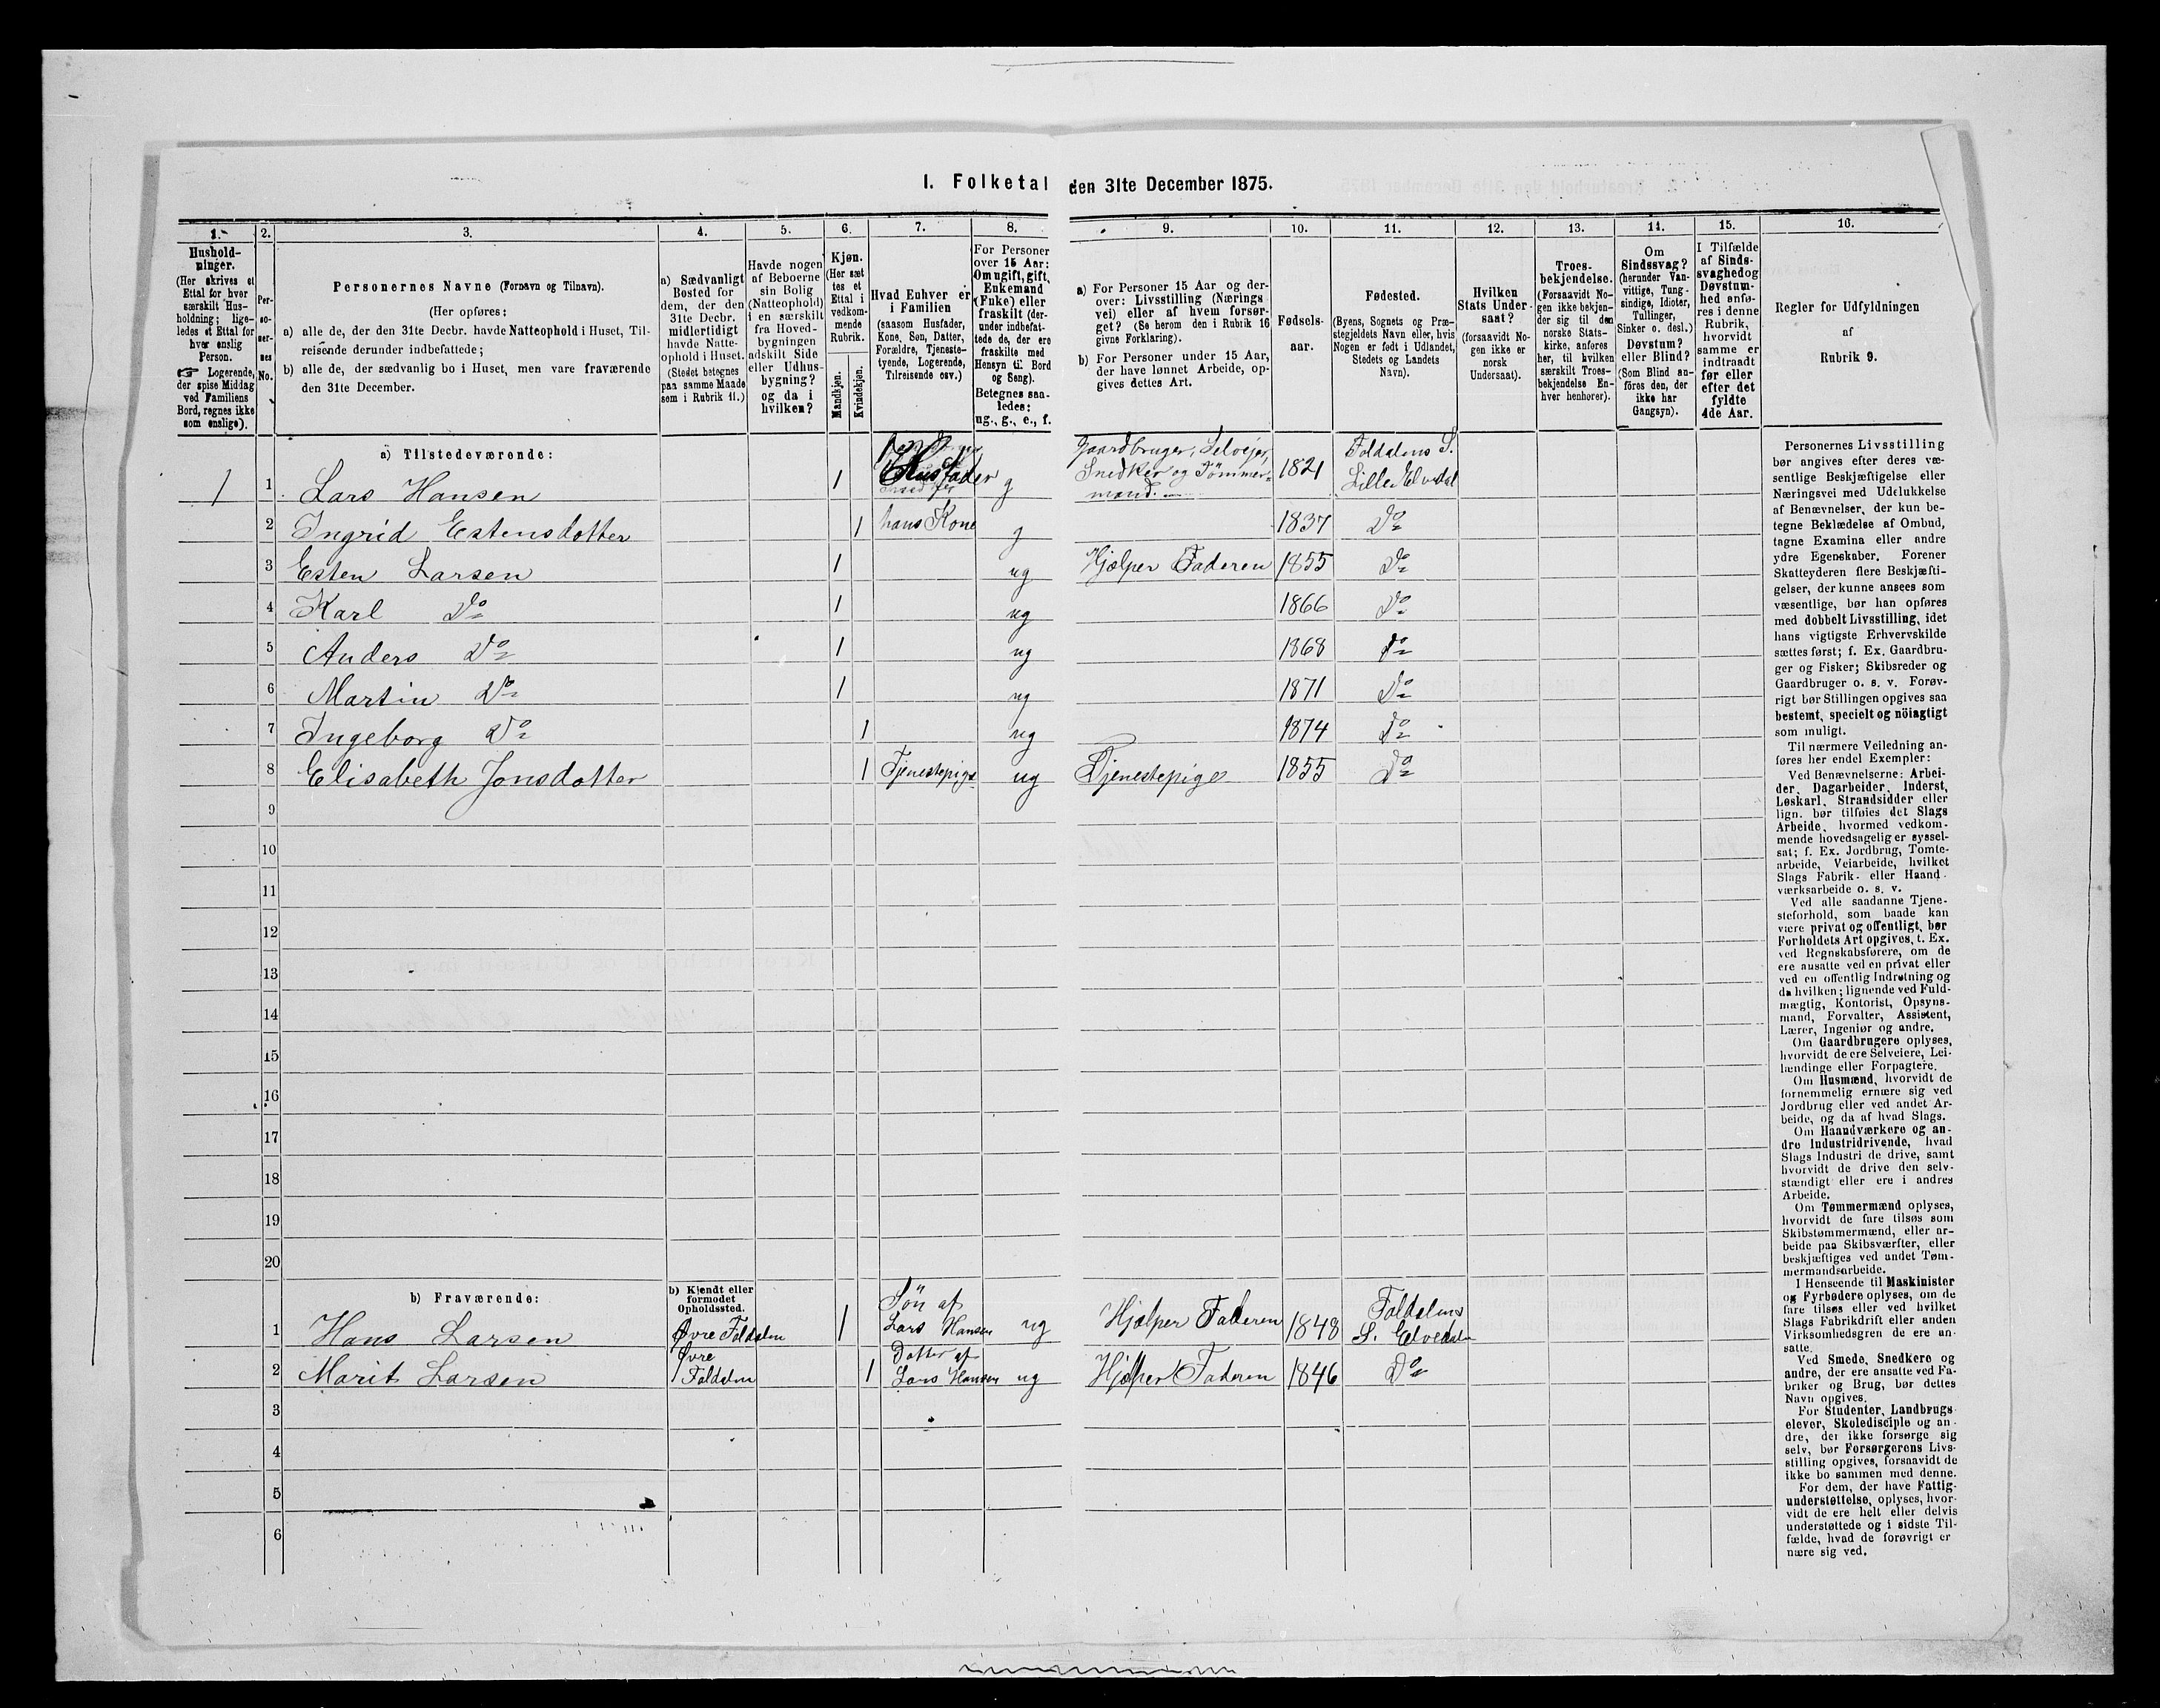 I. Folketal den 31te December 1875.
1. 2. 3. 4. 5. 6. 7. 8. 9. 10. 11. 12. 13. 14. 15. 16.
Hushold-
ninger.
(Her skrives et
Ettal for hver
særskilt Hus-
holdning; lige-
ledes et Ettal for
hver enslig
Person.
☞ Logerende,
der spise Middag
ved Familiens
Bord, regnes ikke
som enslige).
Per-
so-
ner-
nes
No.
Personernes Navne (Fornavn og Tilnavn).
(Her opføres:
a) alle de, der den 31te Decbr. havde Natteophold i Huset, Til-
reisende derunder indbefattede;
b) alle de, der sædvanlig bo i Huset, men vare fraværende
den 31te December.
a) Sædvanligt
Bosted for
dem, der den
31te Decbr.
midlertidigt
havde Natte-
ophold i Huset.
(Stedet betegnes
paa samme Maade
som i Rubrik 11.)
Havde nogen
af Beboerne
sin Bolig
(Natteophold)
i en særskilt
fra Hoved-
bygningen
adskilt Side
eller Udhus-
bygning?
og da i
hvilken?
Kjøn.
(Her sæt
tes et
Ettal i
vedkom-
mende
Rubrik.
Mandkjøn.
Kvindekjøn.
Hvad Enhver er
i Familien
(saasom Husfader,
Kone, Søn, Datter,
Forældre, Tjeneste-
tyende, Logerende,
Tilreisende osv.)
For Personer
over 15 Aar:
Om ugift, gift,
Enkemand
(Enke) eller
fraskilt (der-
under indbefat-
tede de, der ere
fraskilte med
Hensyn til Bord
og Seng).
Betegnes saa-
ledes:
ug., g., e., f.
a) For Personer 15 Aar og der-
over: Livsstilling (Nærings
vei) eller af hvem forsør-
get? (Se herom den i Rubrik 16
givne Forklaring).
b) For Personer under 15 Aar,
der have lønnet Arbeide, op-
gives dettes Art.
Fødsels-
aar.
Fødested.
(Byens, Sognets og Præ-
stegjeldets Navn eller, hvis
Nogen er født i Udlandet,
Stedets og Landets
Navn).
Hvilken
Stats Under-
saat?
(forsaavidt No-
gen ikke er
norsk
Undersaat).
Troes-
bekjendelse.
(Forsaavidt No-
gen ikke bekjen-
der sig til den
norske Stats-
kirke, anføres
her, til hvilken
særskilt Troes-
bekjendelse En-
hver henhører).
Om
Sindssvag?
(herunder Van-
vittige, Tung-
sindige, Idioter,
Tullinger,
Sinker o. desl.)
Døvstum?
eller Blind?
(Som Blind an-
føres den, der
ikke har
Gangsyn).
I Tilfælde
af Sinds-
svaghed og
Døvstum-
hed anfø-
res i denne
Rubrik,
hvorvidt
samme er
indtraadt
før eller
efter det
fyldte
4de Aar.
Regler for Udfyldningen
af
Rubrik 9.
a) Tilstedeværende:
1 1 Lars Hansen 1 Husfader g Gaardbruger, Selvejer, Snedker og Tömmer- mand. 1821 Foldalens S. Lille Elvdal
2 Ingrid Estensdotter 1 hans Kone g 1837 Do
3 Esten Larsen 1 ug Hjælper Faderen 1855 Do
4 Karl Do 1 ug 1866 Do
5 Anders Do 1 ug 1868 Do
6 Martin Do 1 ug 1871 Do
7 Ingeborg Do 1 ug 1874 Do
8 Elisabeth Jonsdotter 1 Tjenestepige ug Tjenestepige 1855 Do
9
10
11
12
13
14
15
16
17
18
19
20
b) Fraværende:
b) Kjendt eller
formodet
Opholdssted.
1 Hans Larsen Øvre Foldalen 1 Søn af Lars Hansen ug Hjælper Faderen 1848 Foldalens L. Elvedalen
2 Marit Larsen Øvre Foldalen 1 Dotter af Lars Hansen ug Hjælper Faderen 1846 Do
3
4
5
6
Personernes Livsstilling
bør angives efter deres væ-
sentlige Beskjæftigelse eller
Næringsvei med Udelukkelse
af Benævnelser, der kun be-
tegne Beklædelse af Ombud,
tagne Examina eller andre
ydre Egenskaber. Forener
Skatteyderen flere Beskjæfti-
gelser, der kunne ansees som
væsentlige, bør han opføres
med dobbelt Livsstilling, idet
hans vigtigste Erhvervskilde
sættes først; f. Ex. Gaardbru-
ger og Fisker; Skibsreder og
Gaardbruger o. s. v. Forøv-
rigt bør Stillingen opgives saa
bestemt, specielt og nöiagtigt
som muligt.
Til nærmere Veiledning an-
føres her endel Exempler:
Ved Benævnelserne: Arbei-
der, Dagarbeider, Inderst,
Løskarl, Strandsidder eller
lign. bør tilføies det Slags
Arbeide, hvormed vedkom-
mende hovedsagelig er syssel-
sat; f. Ex. Jordbrug, Tomte-
arbeide, Veiarbeide, hvilket
Slags Fabrik- eller Haand-
værksarbeide o. s. v.
Ved alle saadanne Tjene-
steforhold, som baade kan
være privat og offentligt, bør
Forholdets Art opgives, t. Ex.
ved Regnskabsførere, om de
ere ansatte ved en privat eller
ved en offentlig Indretning og
da hvilken; lignende ved Fuld-
mægtig, Kontorist, Opsyns-
mand, Forvalter, Assistent,
Lærer, Ingeniør og andre.
Om Gaardbrugere oplyses,
hvorvidt de ere Selveiere, Lei-
lændinge eller Forpagtere.
Om Husmænd, hvorvidt de
fornemmelig ernære sig ved
Jordbrug eller ved andet Ar-
beide, og da af hvad Slags.
Om Haandværkere og an-
dre Industridrivende, hvad
Slags Industri de drive, samt
hvorvidt de drive den selv-
stændigt eller ere i andres
Arbeide.
Om Tømmermænd oplyses,
hvorvidt de fare tilsøs som
Skibstømmermænd, eller ar-
beide paa Skibsværfter, eller
beskjæftiges ved andet Tøm-
mermandsarbeide.
I Henseende til Maskinister
og Fyrbødere oplyses, om de
fare tilsøs eller ved hvilket
Slags Fabrikdrift eller anden
Virksomhedsgren de ere an-
satte.
Ved Smede, Snedkere og
andre, der ere ansatte ved Fa-
briker og Brug, bør dettes
Navn opgives.
For Studenter, Landbrugs-
elever, Skoledisciple og an-
dre, der ikke forsørge sig
selv, bør Forsørgerens Livs-
stilling opgives, forsaavidt de
ikke bo sammen med denne.
For dem, der have Fattig-
understøttelse, oplyses, hvor-
vidt de ere helt eller delvis
understøttede og i sidste Til-
fælde, hvad de forøvrigt er
nære sig ved.